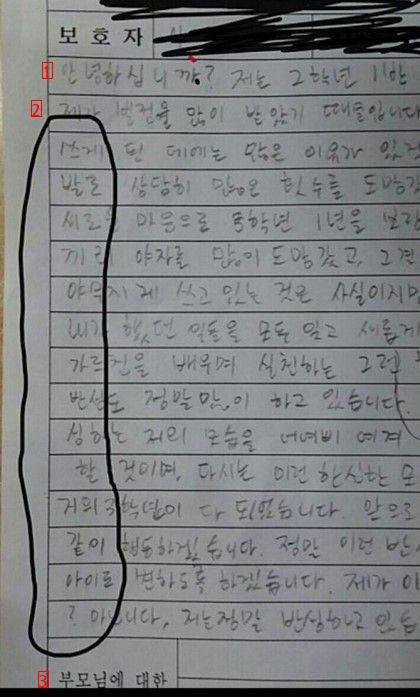 보호자
1 안녕하십니까? 저는 2학년 11반
2 제가 벌점을 많이 받았기 때문입니다
쓰게 된 데에는 많은 이유가 있겠
발로 상당히 많은 횟수를 도망갔
새로운 마음으로 3학년 1년을 보람
끼리 야자를 많이 도망갔고, 그건
야무지게 쓰고 있는 것은 사실이지만
내가 했던 일들을 모두 잊고 새롭게
가르침을 배우며 실천하는 그런
반성도 정말 많이 하고 있습니다
심하는 저의 모습을 어여삐 여겨
할 것이며, 다시는 이런 한심한 모
거의 3학년이 다 되었습니다. 앞으로
같이 행동하겠습니다. 정말 이런 반
아이로 변하도록 하겠습니다. 제가 이
? 아닙니다, 저는 정말 반성하고 있습
3 부모님에 대한